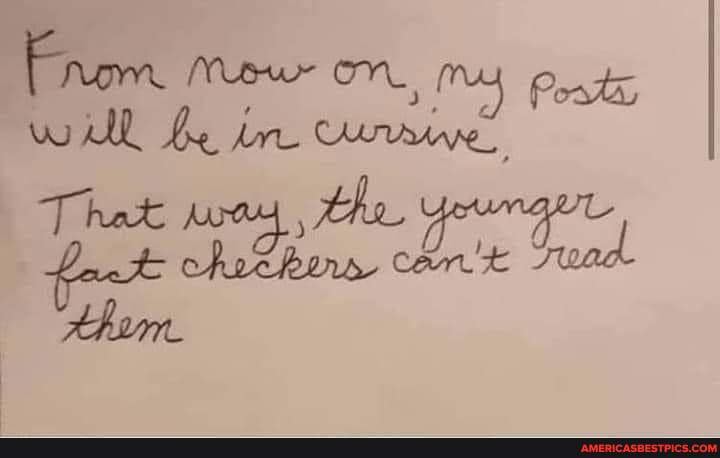 From now on, my posts
will be in cursive.
That way, the younger
fact checkers can't read
them
AMERICASBESTPICS.COM